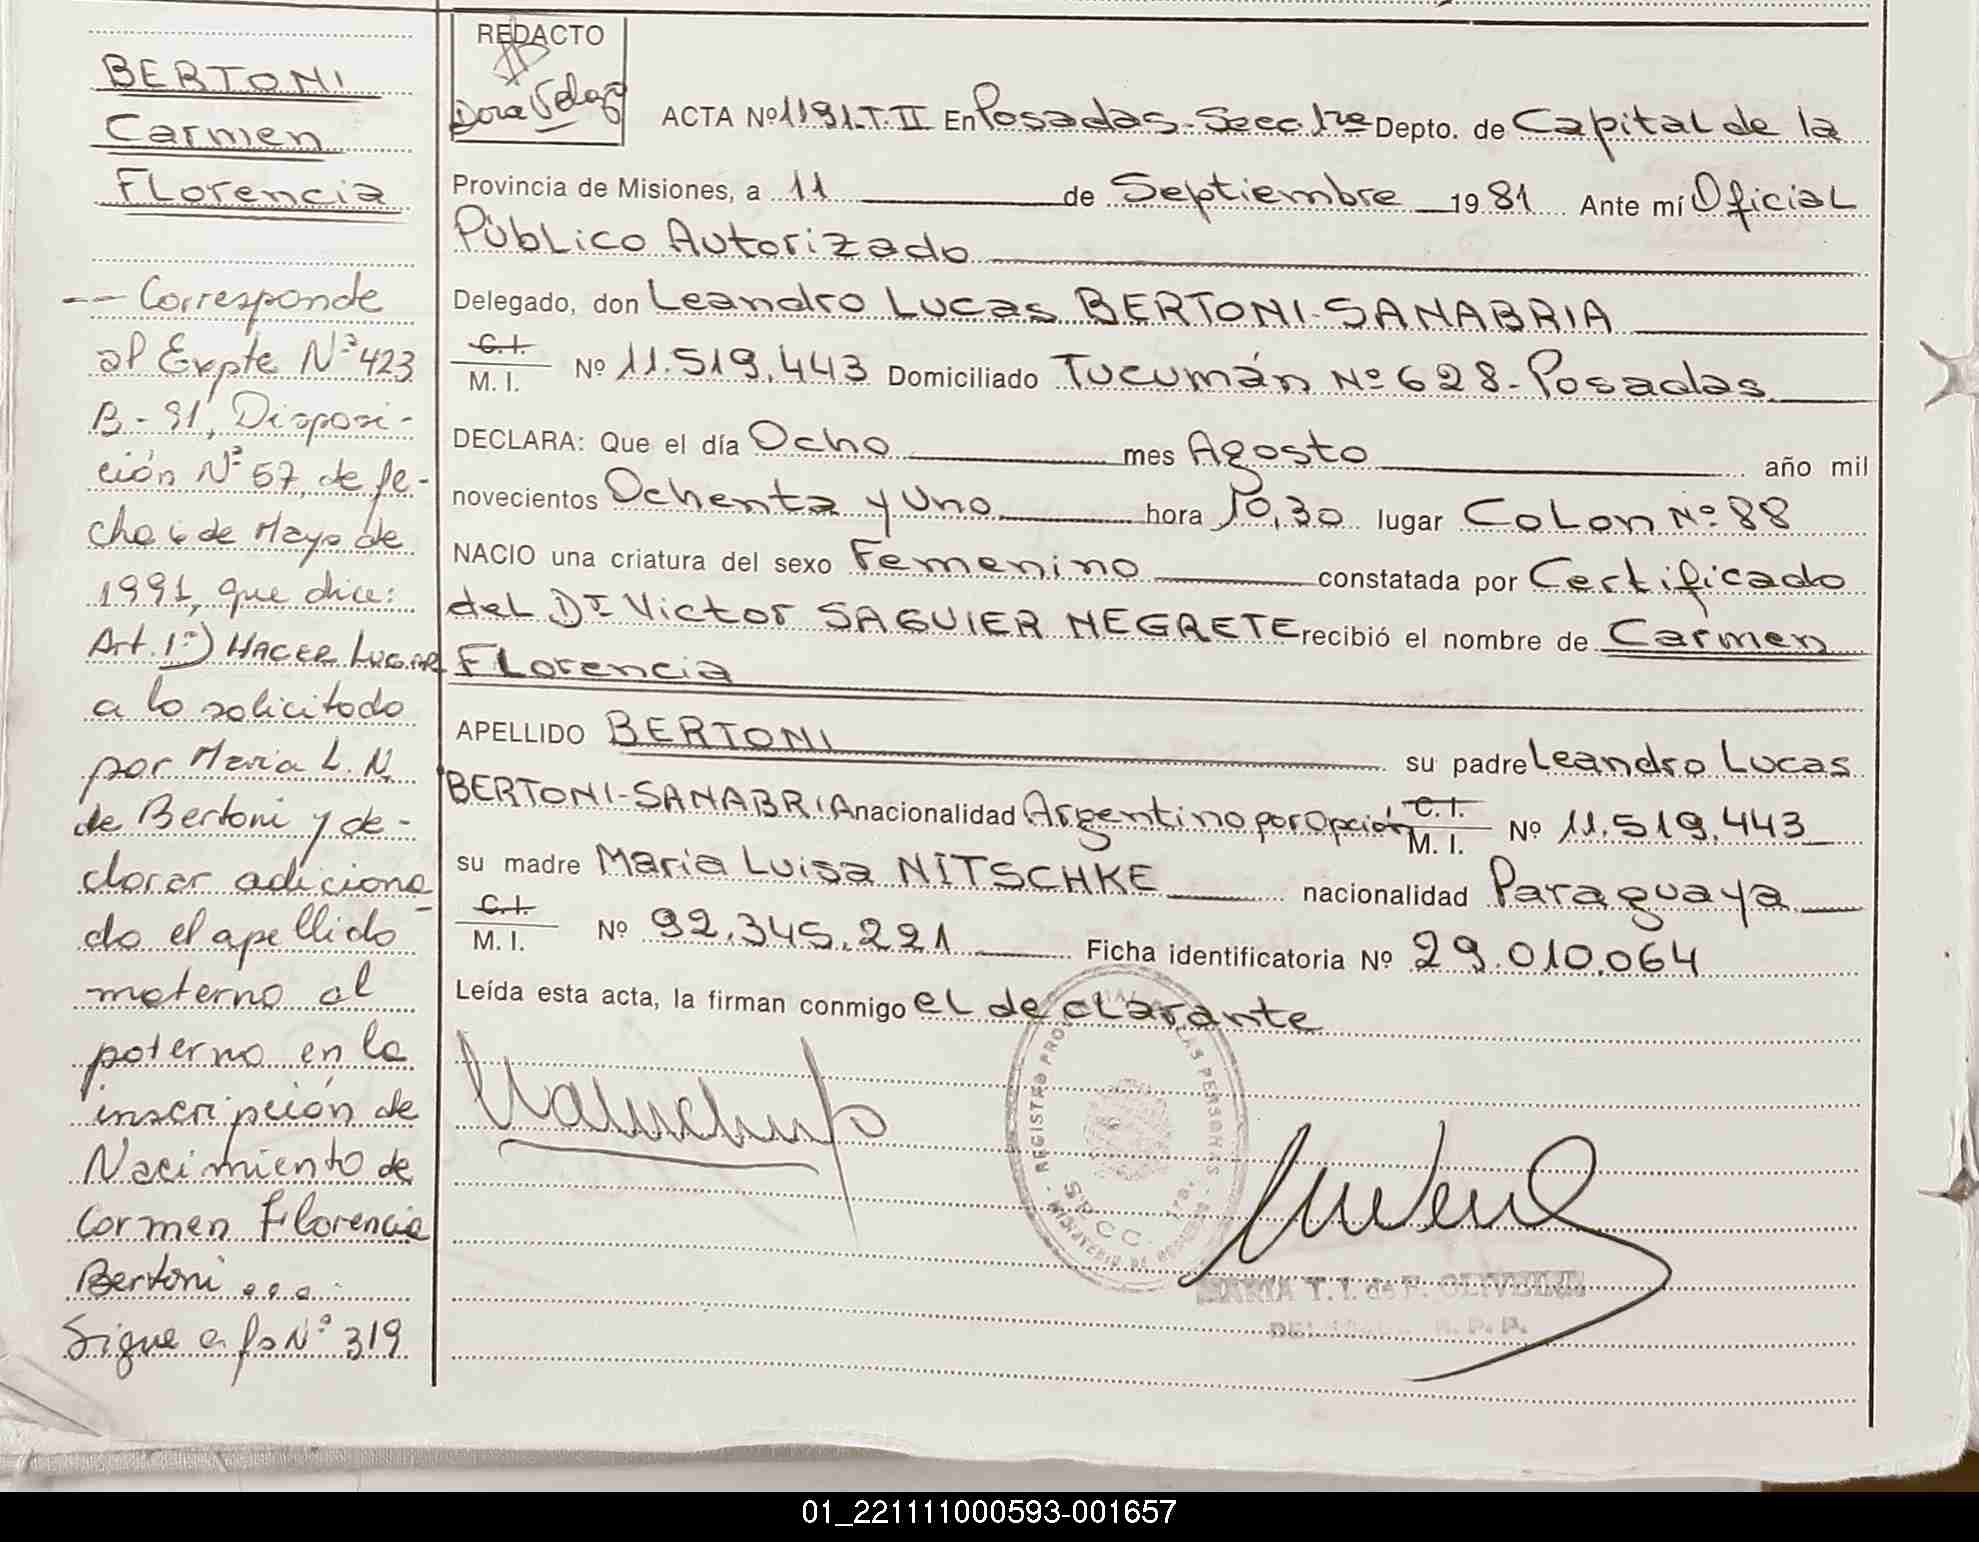 BERTONI
Carmen
Florencia
-- Corresponde
al Expte Nº 423
B - 91, Disposi-
ción Nº 57, de fe-
cha 6 de Mayo de
1991, que dice:
Art. 1º) HACER LUGAR
a lo solicitado
por Maria L. N.
de Bertoni y de-
clarar adiciona-
do el apellido
materno al
paterno en la
inscripción de
Nacimiento de
Carmen Florencia
Bertoni...
Sigue a fs Nº 319
REDACTO
Dora
ACTA Nº 1191.T.II En Posadas-Secc.1ra Depto. de Capital de la
Provincia de Misiones, a 11 de Septiembre 19 81 Ante mí Oficial
Público Autorizado
Delegado, don Leandro Lucas BERTONI-SANABRIA
C.I. / M. I. Nº 11.519.443 Domiciliado Tucumán Nº 628-Posadas
DECLARA: Que el día Ocho mes Agosto año mil
novecientos Ochenta y Uno hora 10,30 lugar Colon Nº 88
NACIO una criatura del sexo Femenino constatada por Certificado
del Dr Victor SAGUIER NEGRETE recibió el nombre de Carmen
Florencia
APELLIDO BERTONI su padre Leandro Lucas
BERTONI-SANABRIA nacionalidad Argentino por Opción C.I. / M. I. Nº 11.519.443
su madre Maria Luisa NITSCHKE nacionalidad Paraguaya
C.I. / M. I. Nº 92.345.221 Ficha identificatoria Nº 29.010.064
Leída esta acta, la firman conmigo el declarante
REGISTRO PROVINCIAL DE LAS PERSONAS
MINISTERIO DE GOBIERNO
1ra.
MARIA T. I. de F. OLIVEIRA
R. P. P.
01_221111000593-001657